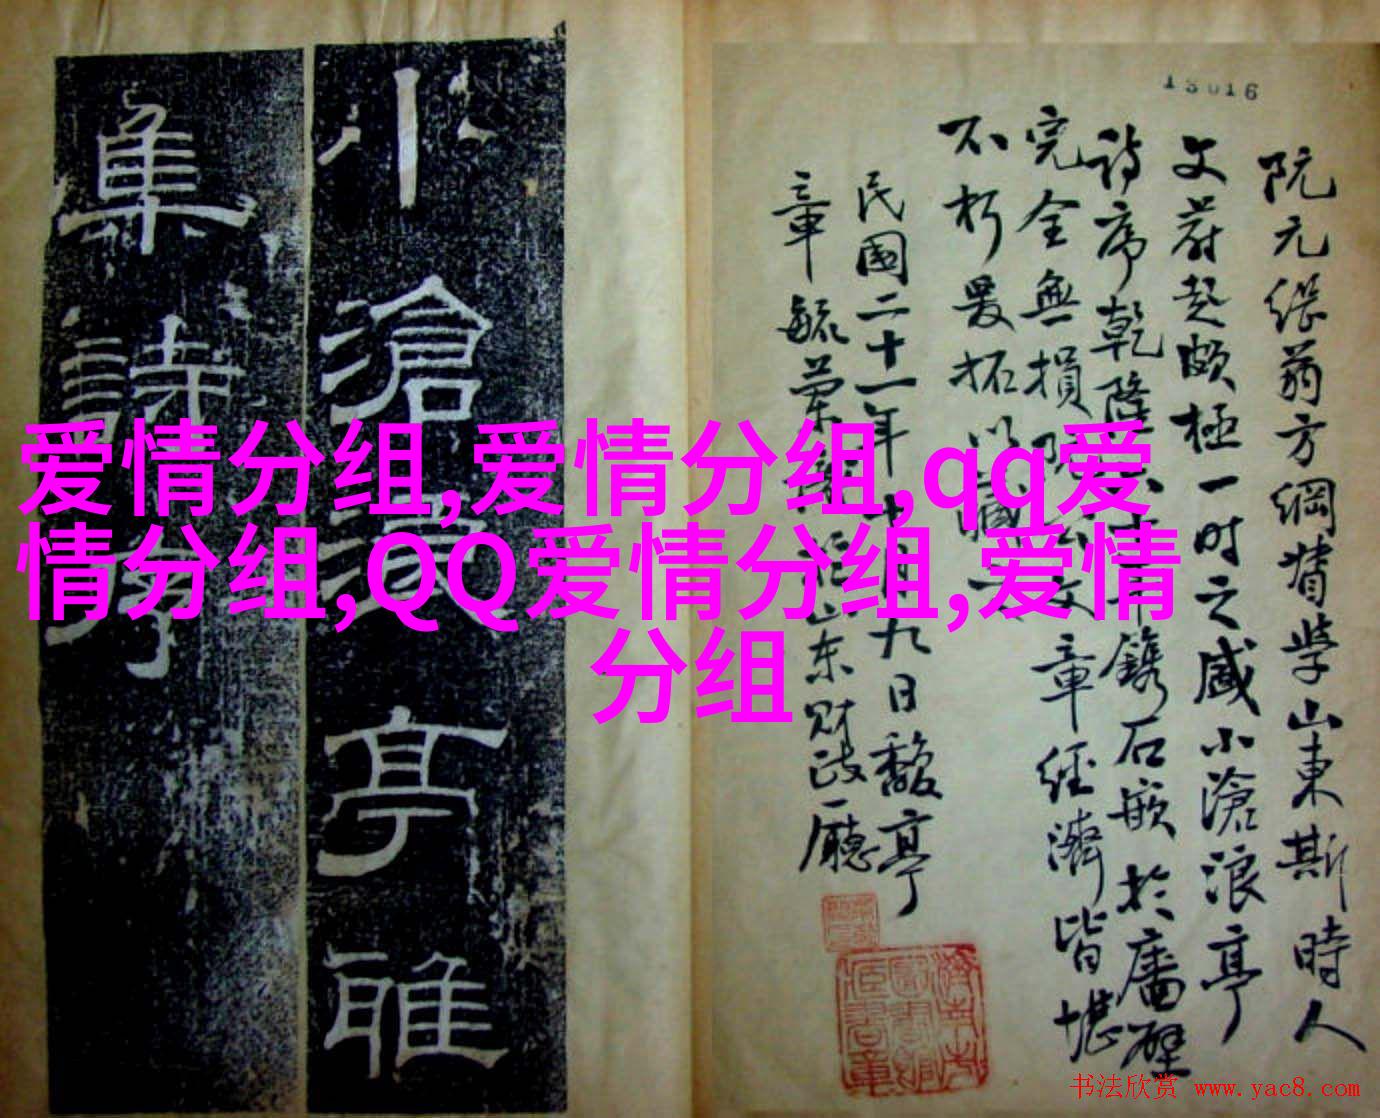 小滄浪亭雅
集詩序
13016
阮元繼翁方綱督學山東斯時人
文蔚起頗極一时之盛小滄浪亭
詩序乾隆 鐫石嵌於廧壁
完全無損 文章經濟皆堪
不朽爰拓以藏
民國二十一年十 九日馥亭
章毓蘭 山东财政廳
爱情分组,爱情分组,qq爱
情分组,QQ爱情分组,爱情
分组
书法欣赏 www.yac8.com